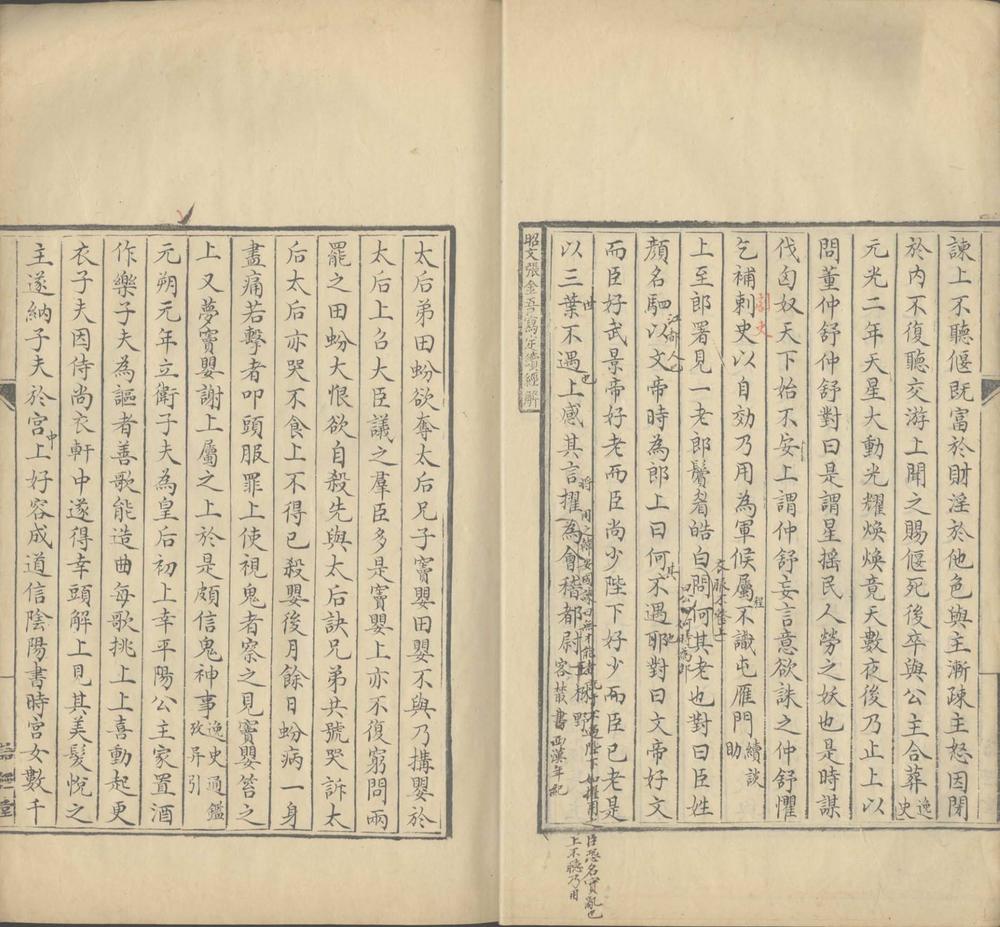 諫上不聽偃既富於財淫於他色與主漸疎主怒因閉
於內不復聽交游上聞之賜偃死後卒與公主合葬逸史
元光二年天星大動光耀煥煥竟天數夜後乃止上以
問董仲舒仲舒對曰是謂星摇民人勞之妖也是時謀
伐匈奴天下始不安上謂仲舒妄言意欲誅之仲舒懼
乞補刺史以自効乃用為軍候屬不識屯雁門續談助
程
上至郎署見一老郎鬢眉皓白問何其老也對曰臣姓
衣服不整上
顏名駟以文帝時為郎上曰何不遇耶對曰文帝好文
江都人也
其
也
而臣好武景帝好老而臣尚少陛下好少而臣已老是
以三葉不遇上感其言擢為會稽都尉
世
也
野客叢書
西漢年紀
臣恐名實亂也
上不聽乃用
昭文張金吾寫定續經解
太后弟田蚡欲奪太后兄子竇嬰田嬰不與乃搆嬰於
太后上召大臣議之羣臣多是竇嬰上亦不復窮問兩
罷之田蚡大恨欲自殺先與太后訣兄弟共號哭訴太
后太后亦哭不食上不得已殺嬰後月餘日蚡病一身
盡痛若擊者叩頭服罪上使視鬼者察之見竇嬰笞之
上又夢竇嬰謝上屬之上於是頗信鬼神事逸史通鑑攷异引
元朔元年立衛子夫為皇后初上幸平陽公主家置酒
作樂子夫為謳者善歌能造曲每歌挑上上喜動起更
衣子夫因侍尚衣軒中遂得幸頭解上見其美髮悅之
主遂納子夫於宮上好容成道信陰陽書時宮女數千
中